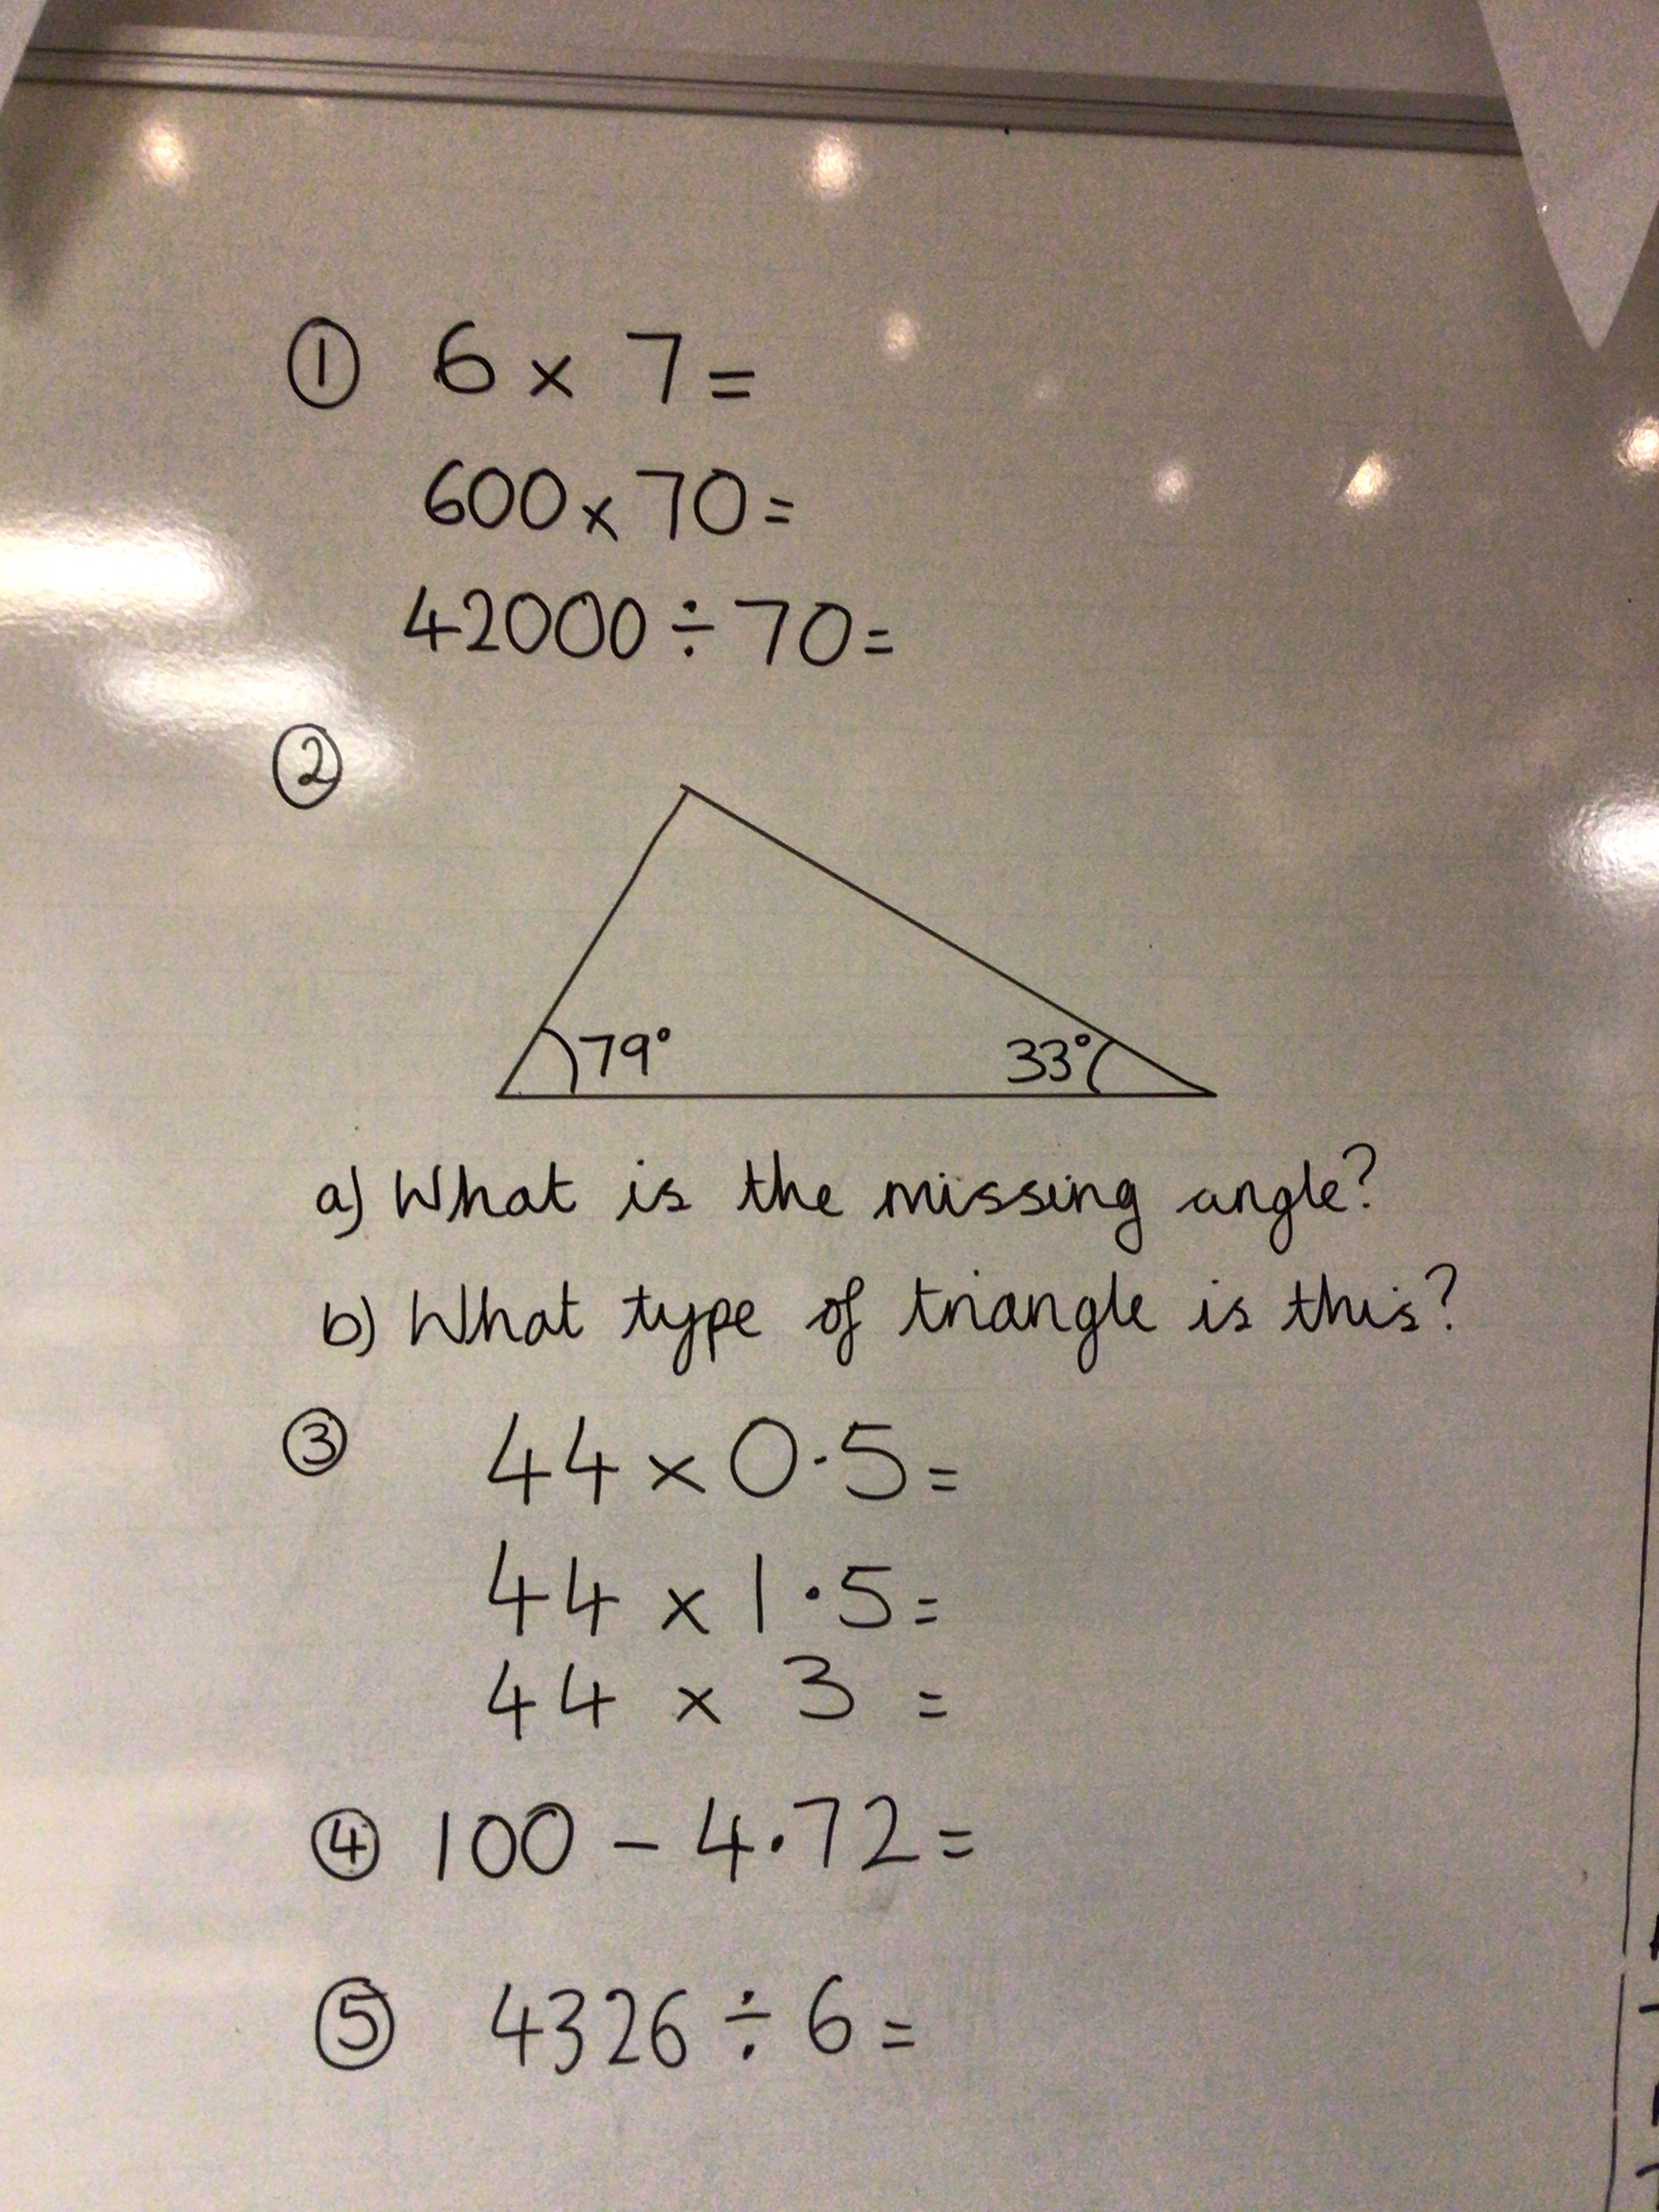 ① 6 × 7 =
600 × 70 =
42000 ÷ 70 =
②
79° 33°
a) What is the missing angle?
b) What type of triangle is this?
③ 44 × 0·5 =
44 × 1·5 =
44 × 3 =
④ 100 - 4·72 =
⑤ 4326 ÷ 6 =